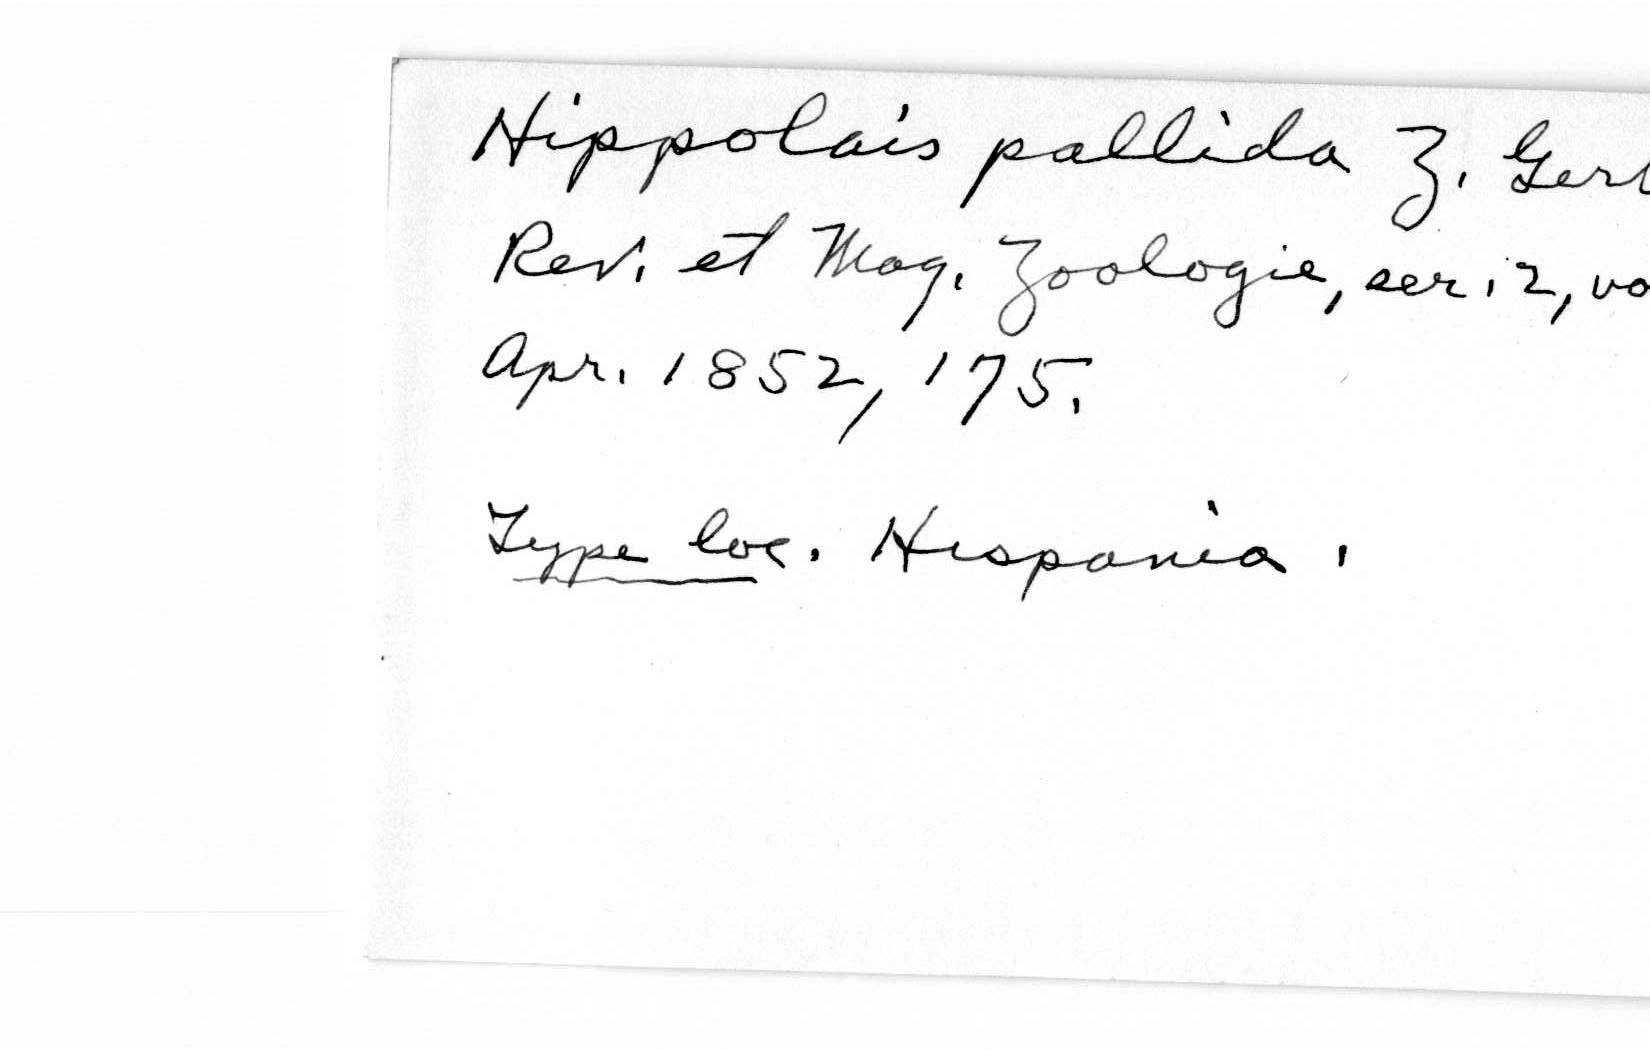 Hippolais pallida Z. Gerb
Rev. et Mag. Zoologie, ser. 2, vo
Apr. 1852, 175.
Type loc. Hispania.